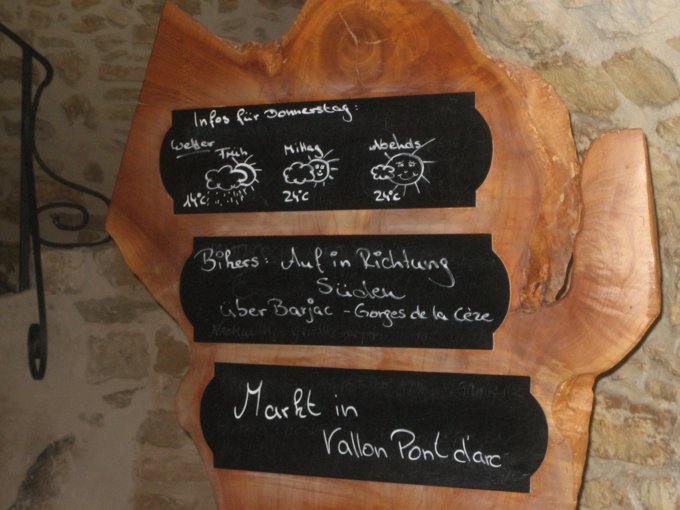 Infos für Donnerstag:
Wetter Früh Mittag Abends
14°C 24°C 24°C
Bikers: Auf in Richtung
Süden
über Barjac - Gorges de la Cèze
Markt in
Vallon Pont d'arc